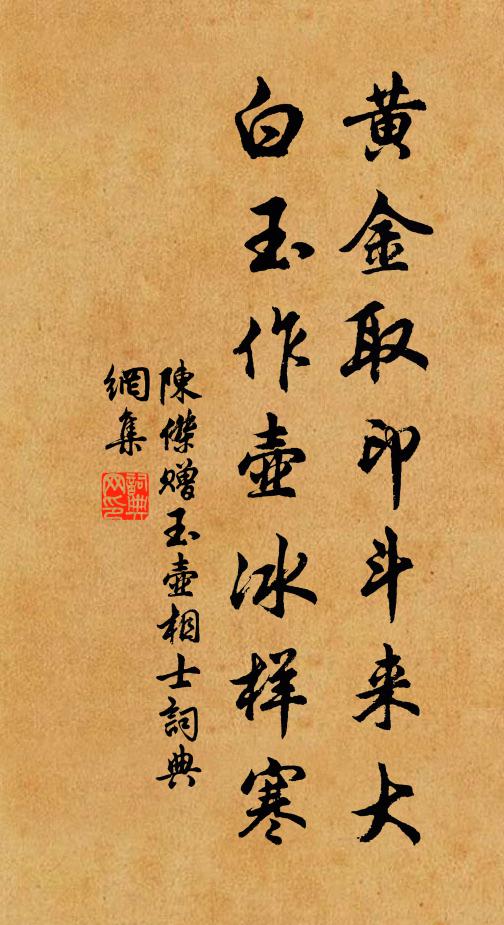 黄金取印斗来大
白玉作壺冰样寒
陳傑赠玉壺相士詞典
網集
詞典
网印